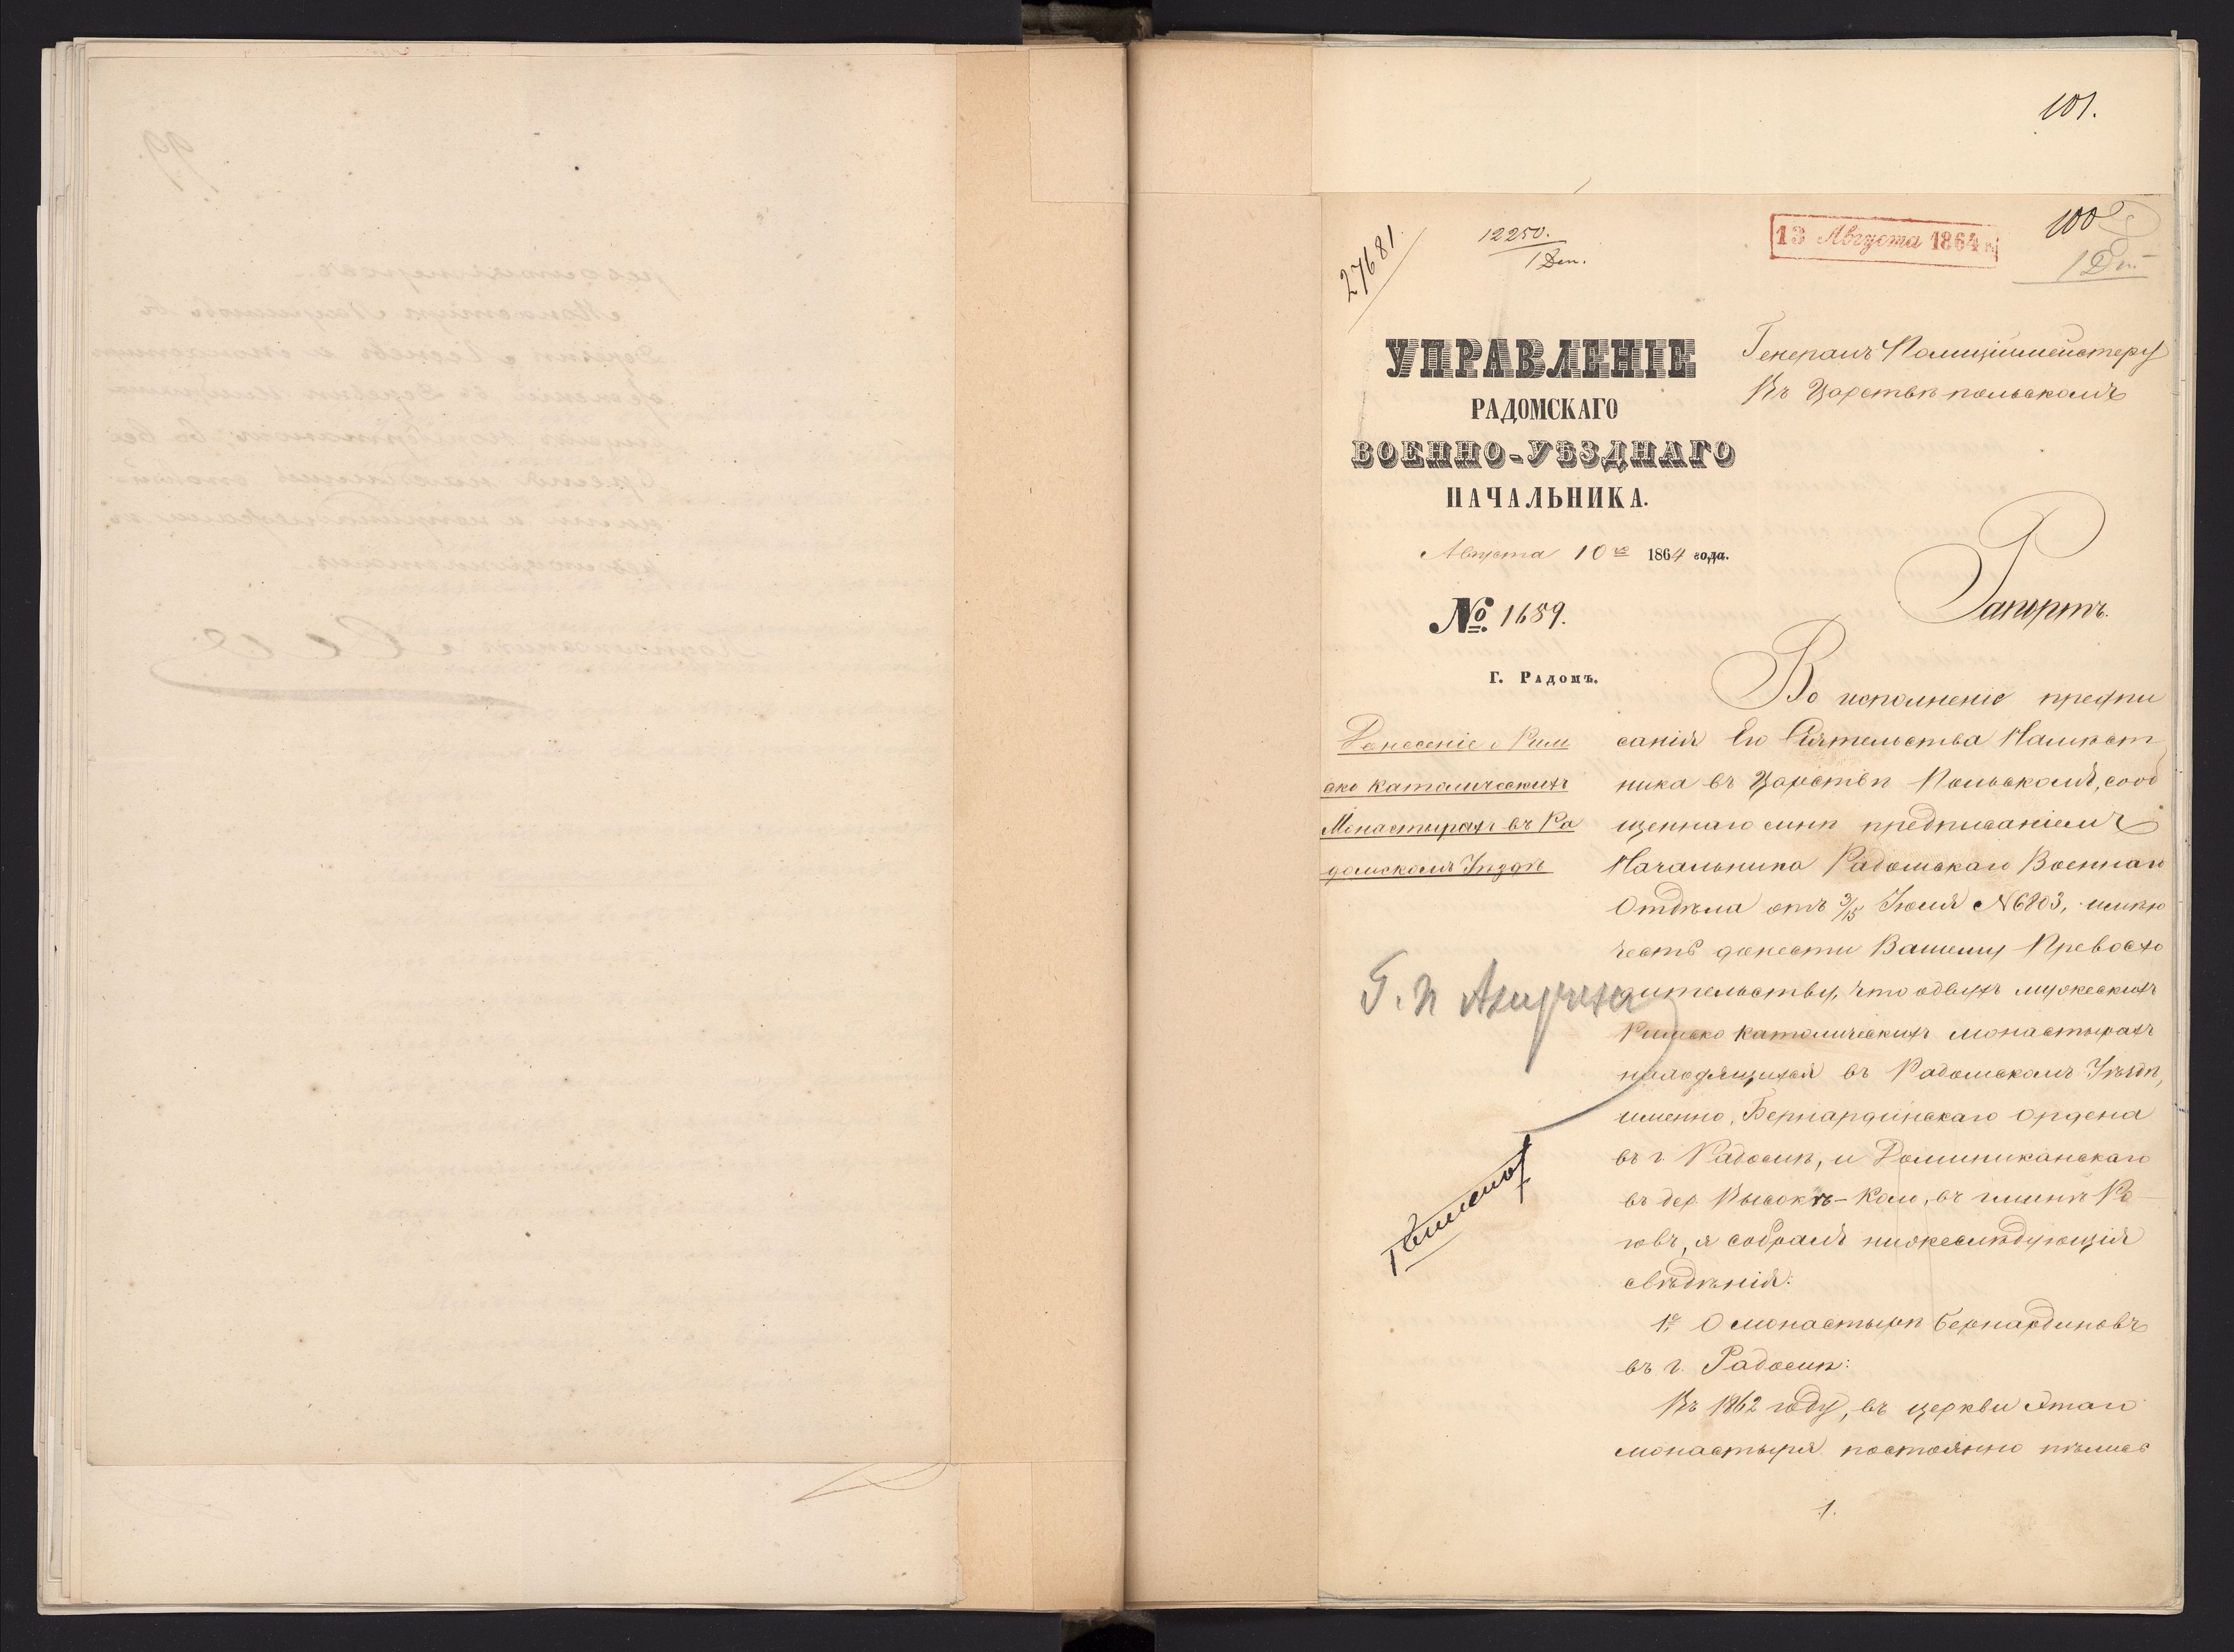 101.
100
27681.
12250.
1 Деп.
13 Августа 1864
УПРАВЛЕНІЕ
РАДОМСКАГО
ВОЕННО-УѢЗДНАГО
НАЧАЛЬНИКА.
Августа 10го 1864 года.
№ 1689.
Г. Радомъ.
Донесеніе о Рим
ско католическихъ
Монастыряхъ въ Ра
домскомъ Уѣздѣ
Генералъ Полиціймейстеру
Въ Царствѣ польскомъ
Рапортъ.
Во исполненіе предпи
санія Его Сіятельства Намѣст
ника въ Царствѣ Польскомъ, сооб
щеннаго мнѣ предписаніемъ
Начальника Радомскаго Военнаго
Отдѣла отъ 3/15 Іюля №6803, имѣю
честь донести Вашему Превосхо
дительству, что о двухъ мужескихъ
Римско католическихъ монастыряхъ
находящихся въ Радомскомъ Уѣздѣ,
именно, Бернардинскаго ордена
въ г Радомѣ, и Доминиканскаго
въ дер Высокѣ-Коло, въ гминѣ
я собралъ нижеслѣдующія
свѣдѣнія:
1е О монастырѣ Бернардиновъ
въ г. Радомѣ:
Въ 1862 году, въ церкви этаго
монастыря постоянно пѣлись
1.